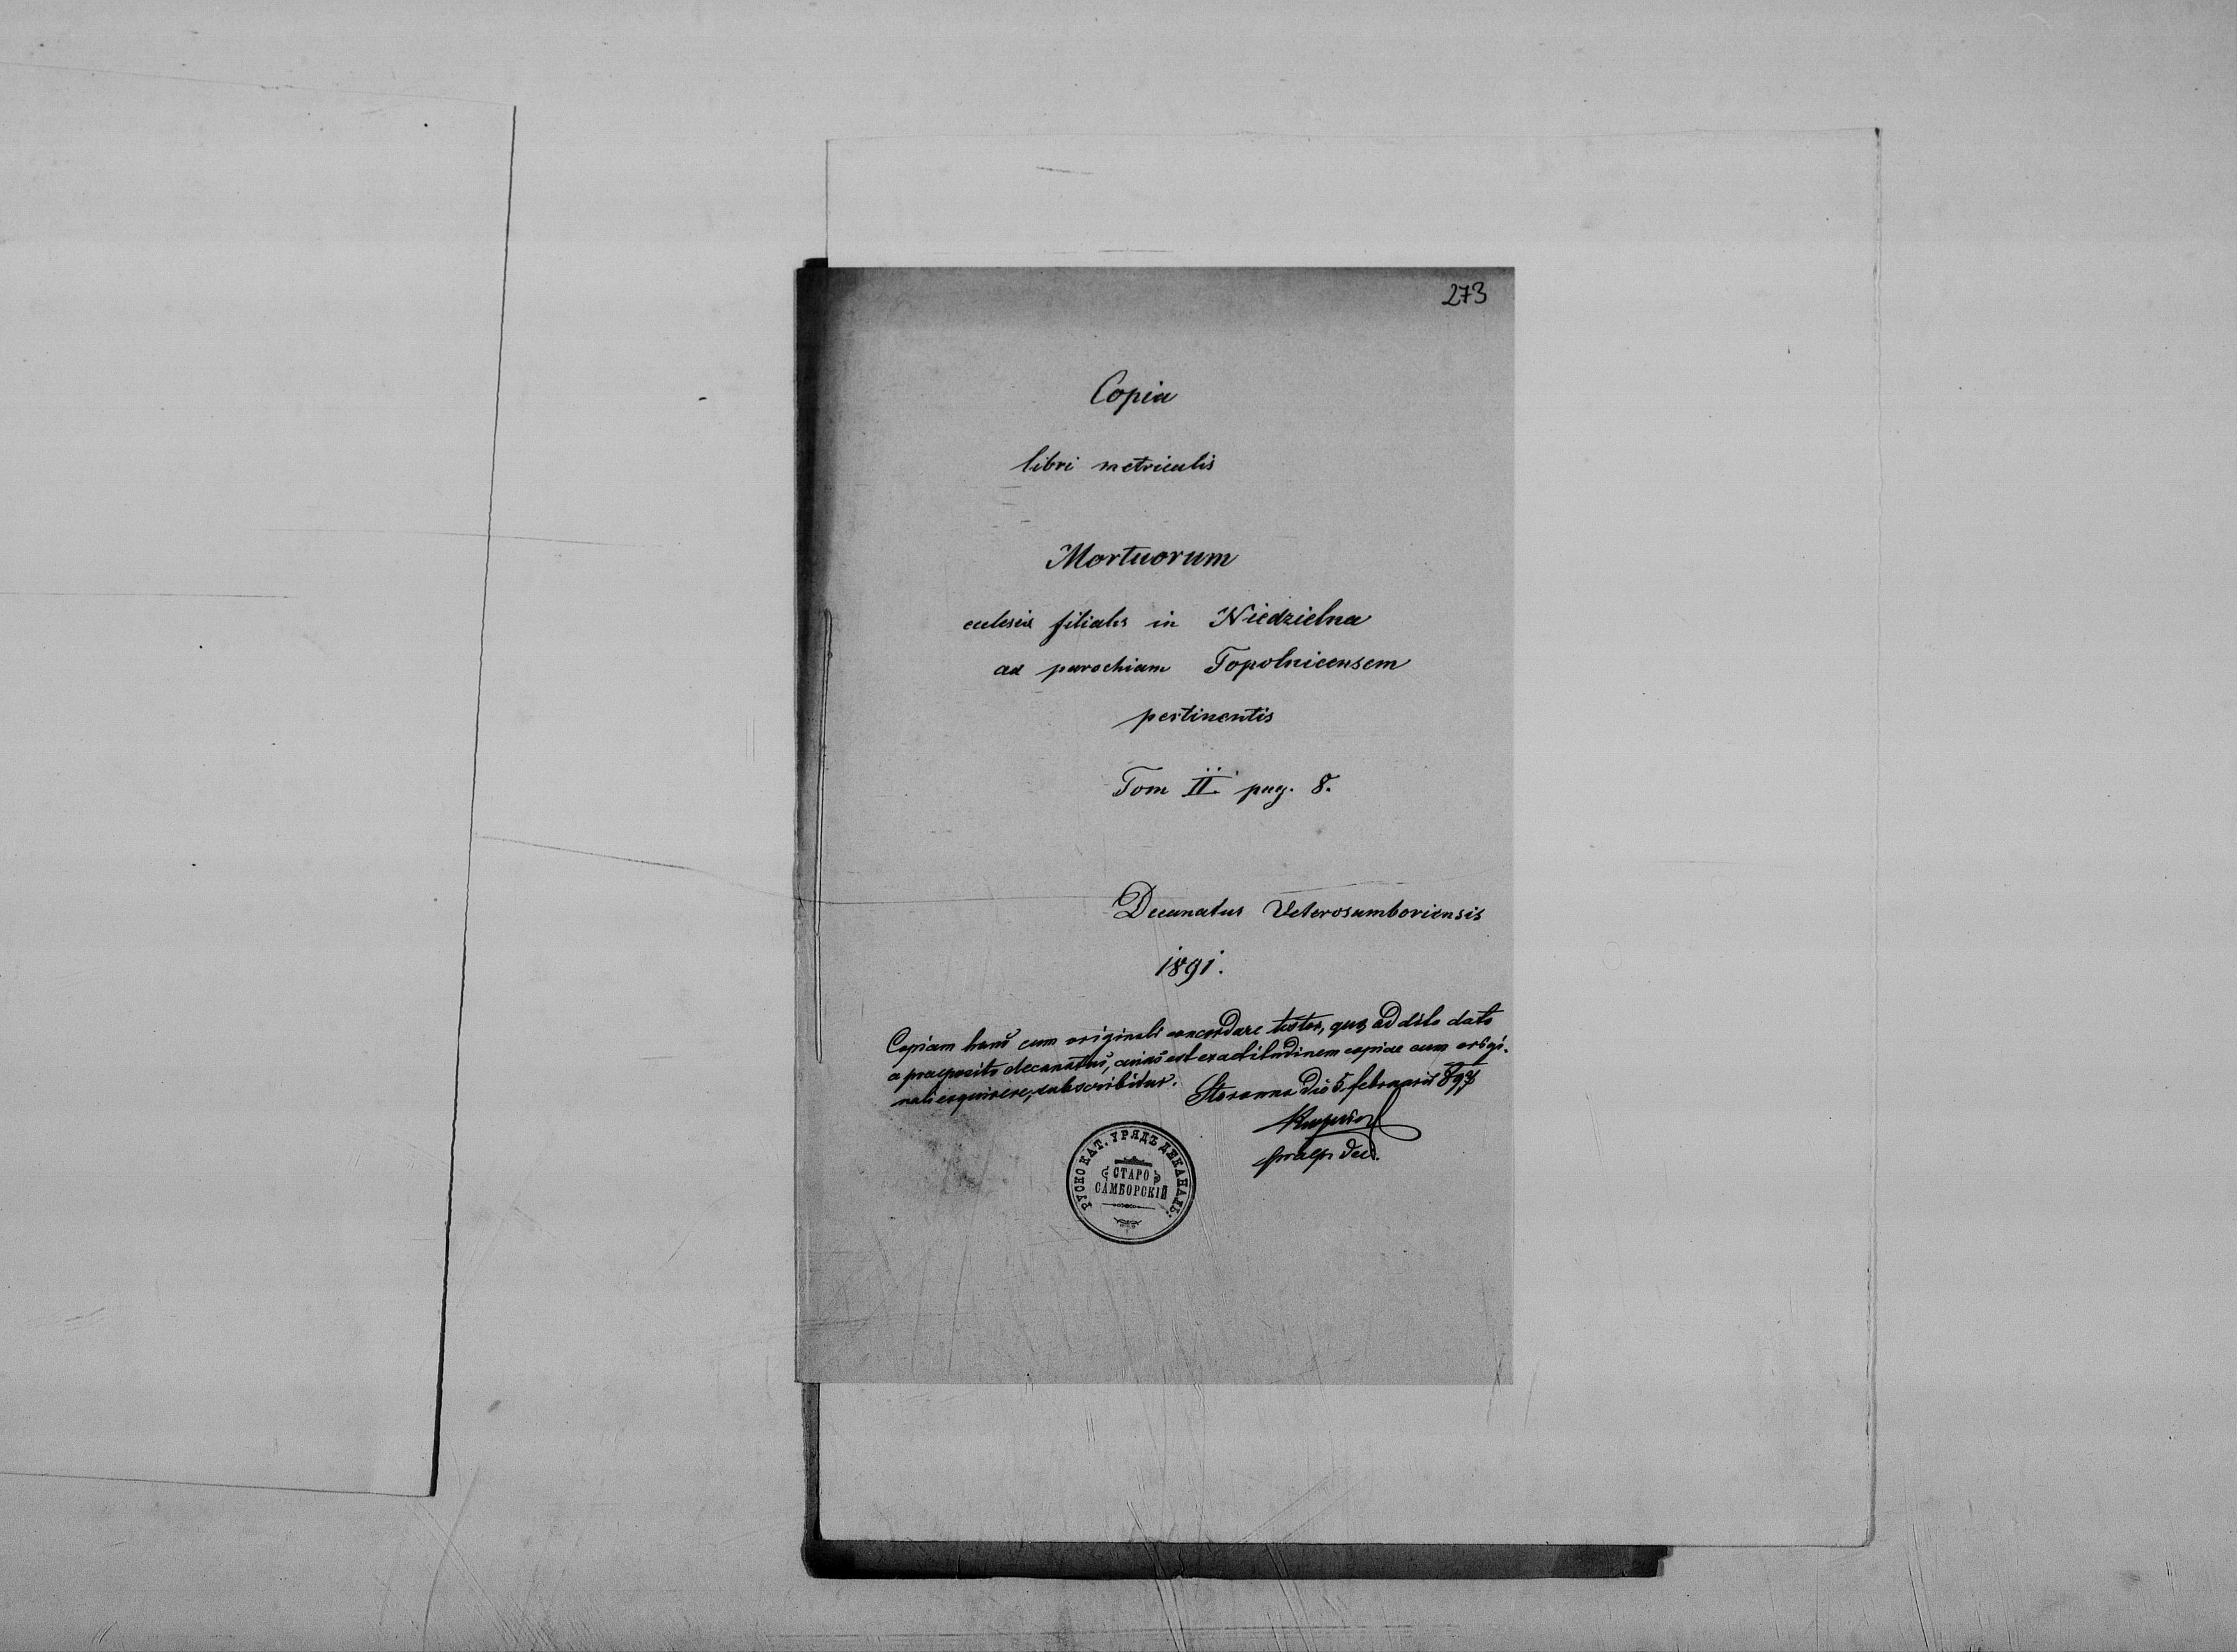 273
Copia
libri metriculis
Mortuorum
eclesia filialis in Niedzielna
ad parochiam Topolnicensem
pertinentis
Tom II. pag. 8.
Decanatus Veterosamboriensis
1891.
Copiam hanc cum originali concordare testor, quae ad dato
a praeposito decanatus, cuius est exactitudinem copiae cum origi-
nali exquirere, subscribitur. die 5. februarii 897
praep. dec.
РУСКО КАТ. УРЯДЪ ДЕКАНАЛЬ.
СТАРО
САМБОРСКІЙ